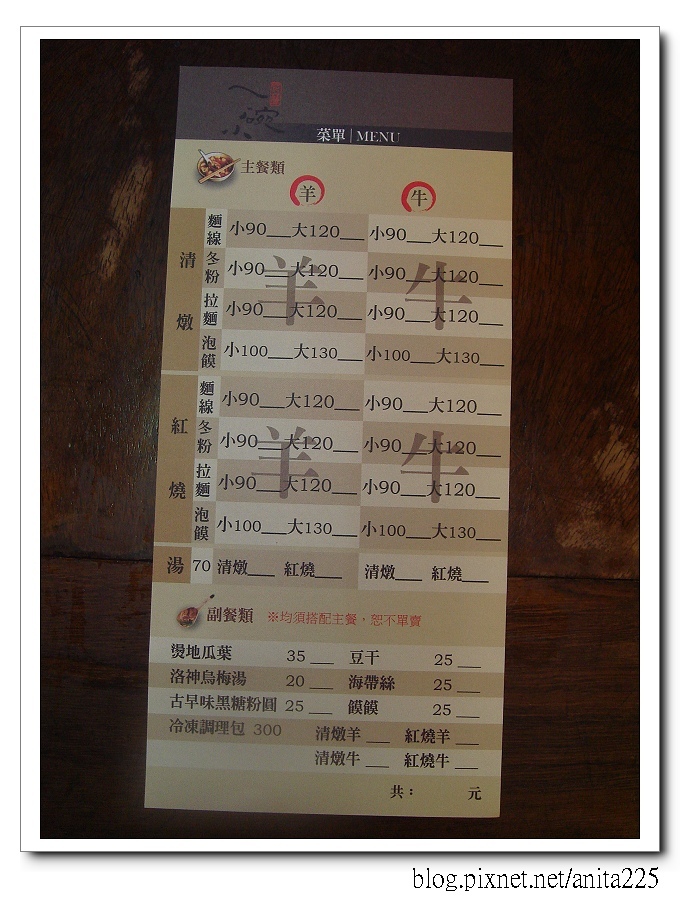 一碗小
菜單 | MENU
主餐類
羊 牛
清燉
麵線 小90__大120__ 小90__大120__
冬粉 小90__大120__ 小90__大120__
拉麵 小90__大120__ 小90__大120__
泡饃 小100__大130__ 小100__大130__
羊 牛
紅燒
麵線 小90__大120__ 小90__大120__
冬粉 小90__大120__ 小90__大120__
拉麵 小90__大120__ 小90__大120__
泡饃 小100__大130__ 小100__大130__
羊 牛
湯 70 清燉__ 紅燒__ 清燉__ 紅燒__
副餐類 ※均須搭配主餐，恕不單賣
燙地瓜葉 35 __ 豆干 25 __
洛神烏梅湯 20 __ 海帶絲 25 __
古早味黑糖粉圓 25 __ 饃饃 25 __
冷凍調理包 300 清燉羊 __ 紅燒羊 __
清燉牛 __ 紅燒牛 __
共： 元
blog.pixnet.net/anita225